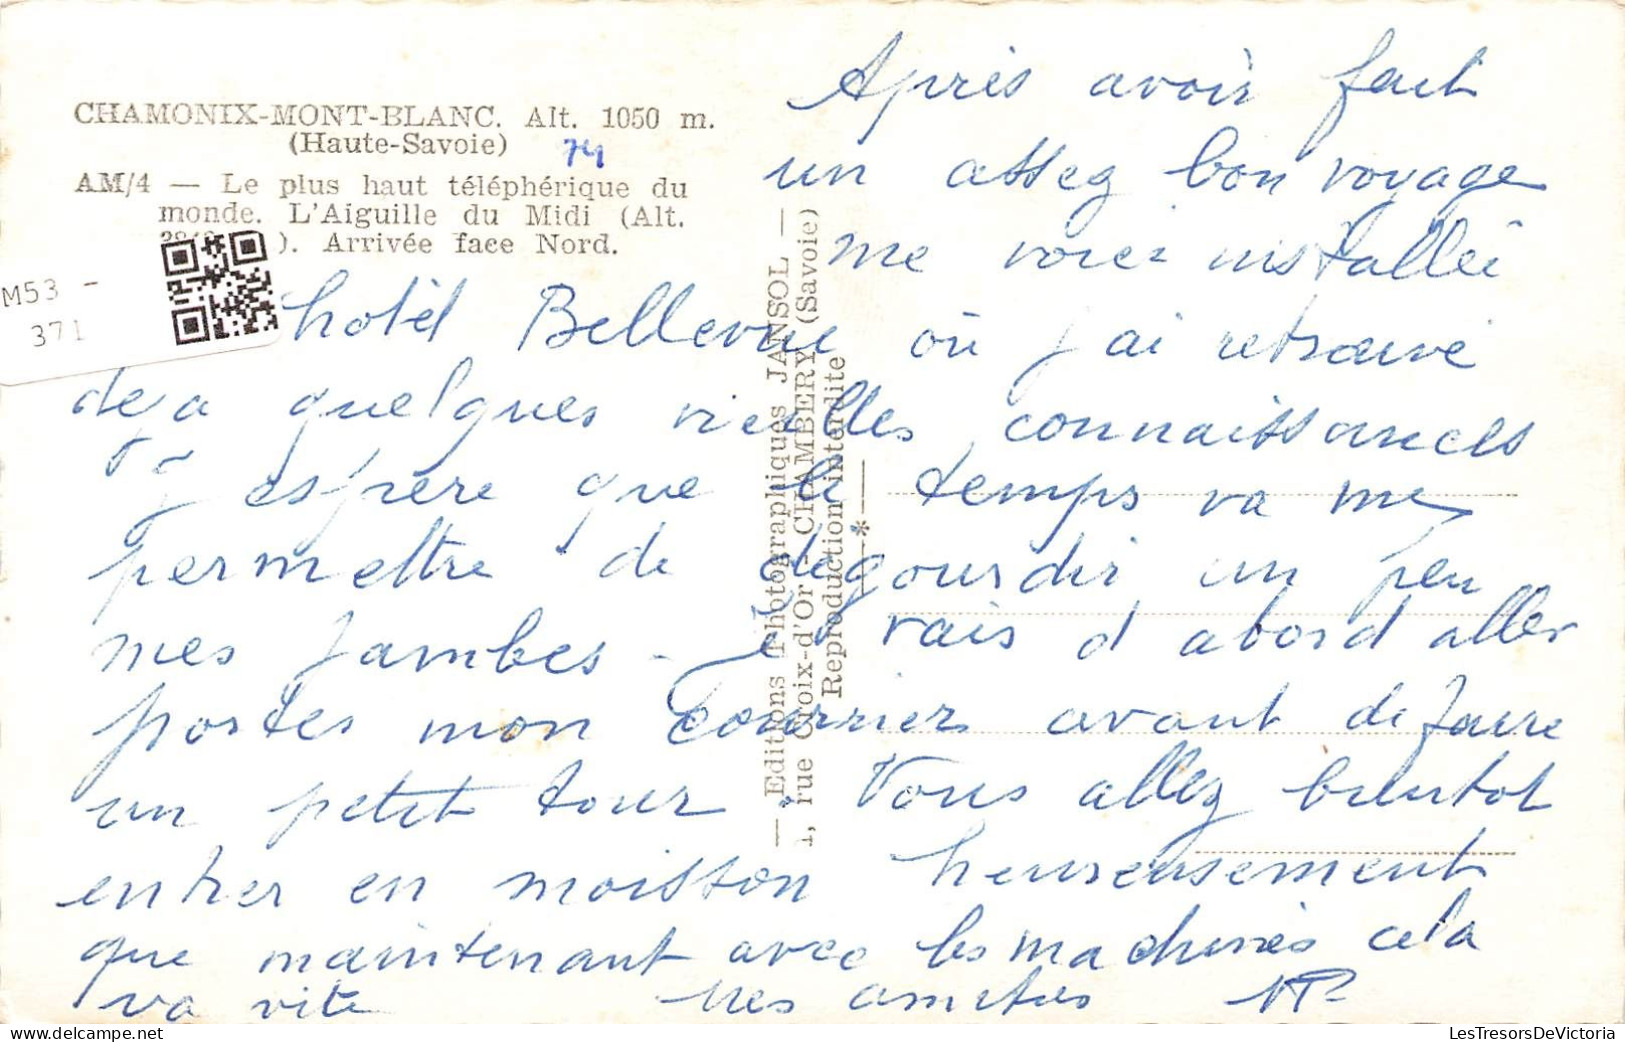 CHAMONIX-MONT-BLANC. Alt. 1050 m.
(Haute-Savoie) 74
AM/4 — Le plus haut téléphérique du
monde. L'Aiguille du Midi (Alt.
). Arrivée face Nord.
M53 -
371
— Editions Photographiques JANSOL —
1, rue Croix-d'Or - CHAMBERY (Savoie)
Reproduction interdite
*
Après avoir fait
un assez bon voyage
me voici installée
hotel Bellevue où j'ai retrouvé
deja quelques vieilles connaissances
J'espère que le temps va me
permettre de dégourdir un peu
mes jambes - Je vais d'abord aller
porter mon courrier avant de faire
un petit tour Vous allez bientot
entrer en moisson heureusement
que maintenant avec les machines cela
va vite Mes amitiés
LesTresorsDeVictoria
delcampe.net